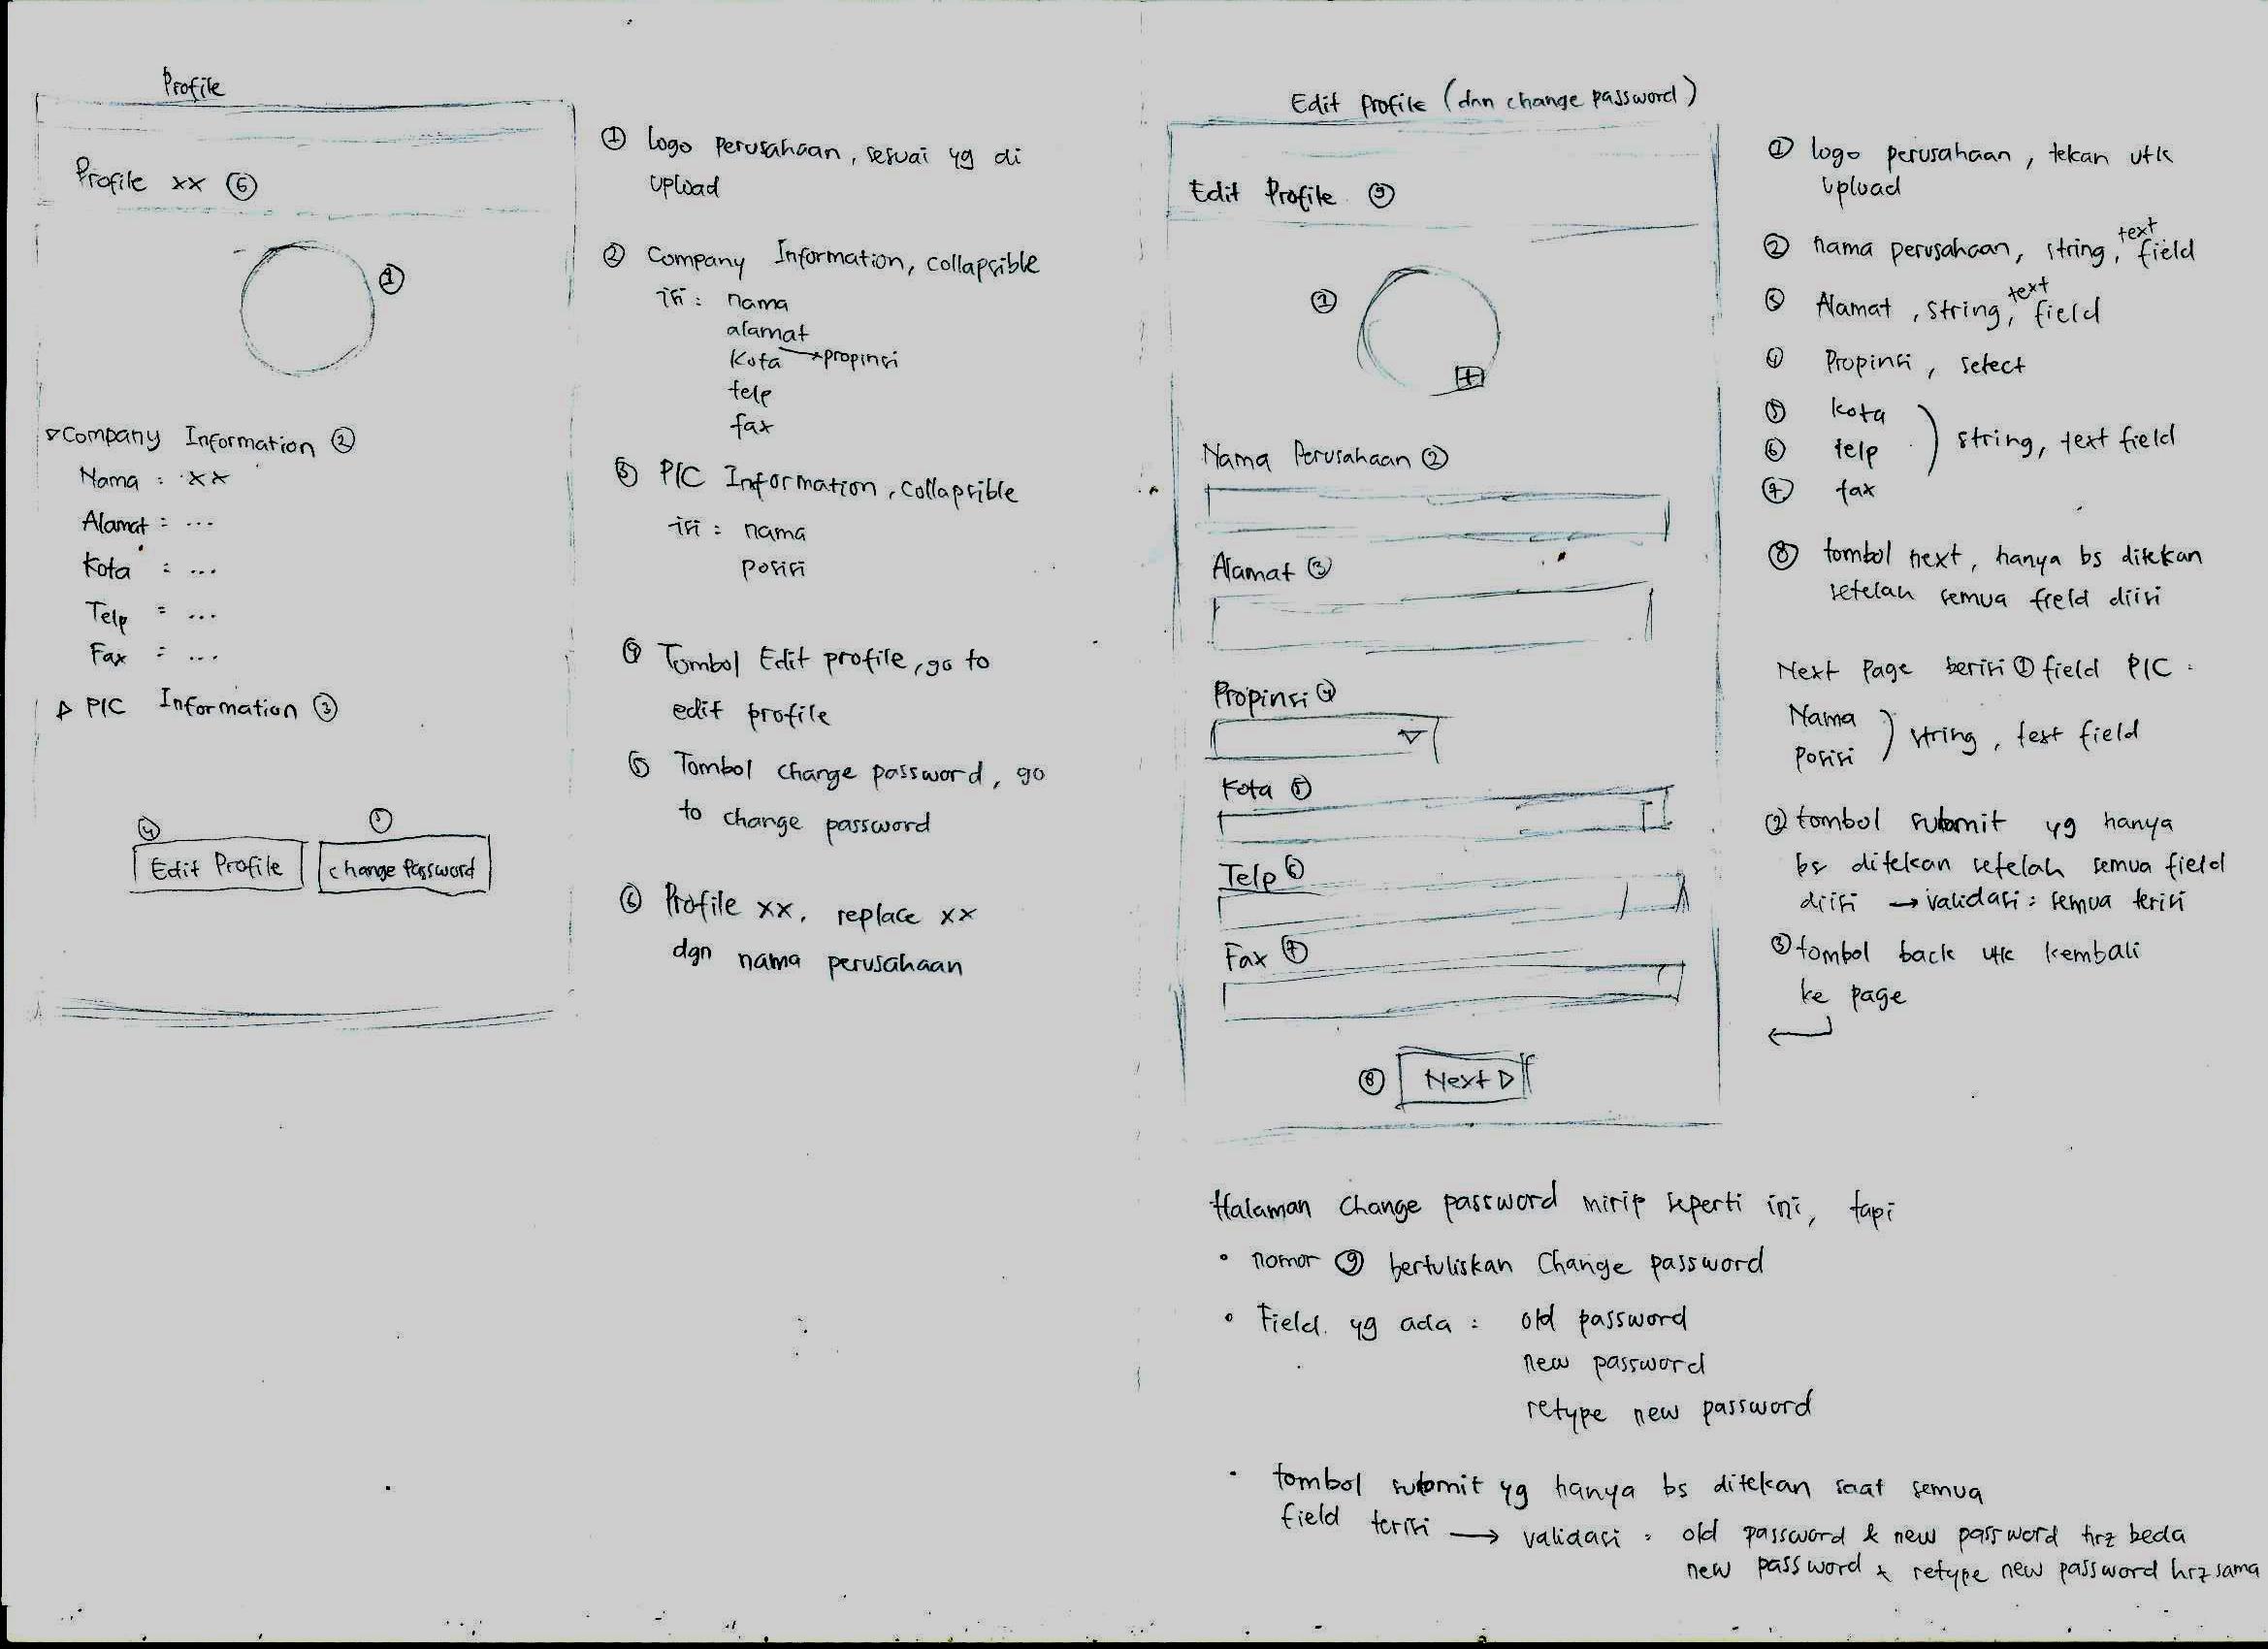 Profile
Profile xx ⑥
①
▽ Company Information ②
Nama : xx
Alamat : ...
Kota : ...
Telp : ...
Fax : ...
▷ PIC Information ③
④
⑤
Edit Profile
change Password
① logo perusahaan, sesuai yg di
upload
② Company Information, collapsible
isi : nama
alamat
kota → propinsi
telp
fax
③ PIC Information, collapsible
isi : nama
posisi
④ Tombol Edit profile, go to
edit profile
⑤ Tombol change password, go
to change password
⑥ Profile xx, replace xx
dgn nama perusahaan
Edit Profile (dan change password)
Edit Profile ⑨
①
+
Nama Perusahaan ②
Alamat ③
Propinsi ④
Kota ⑤
Telp ⑥
Fax ⑦
⑧ Next ▷
① logo perusahaan, tekan utk
upload
② nama perusahaan, string, text field
③ Alamat, string, text field
④ Propinsi, select
⑤ kota
⑥ telp ) string, text field
⑦ fax
⑧ tombol next, hanya bs ditekan
setelah semua field diisi
Next Page berisi ① field PIC :
Nama
posisi ) string, text field
② tombol submit yg hanya
bs ditekan setelah semua field
diisi → validasi : semua terisi
③ tombol back utk kembali
ke page
↵
Halaman Change password mirip seperti ini, tapi
• nomor ⑨ bertuliskan Change password
• Field yg ada : old password
new password
retype new password
• tombol submit yg hanya bs ditekan saat semua
field terisi → validasi : old password & new password hrz beda
new password & retype new password hrz sama